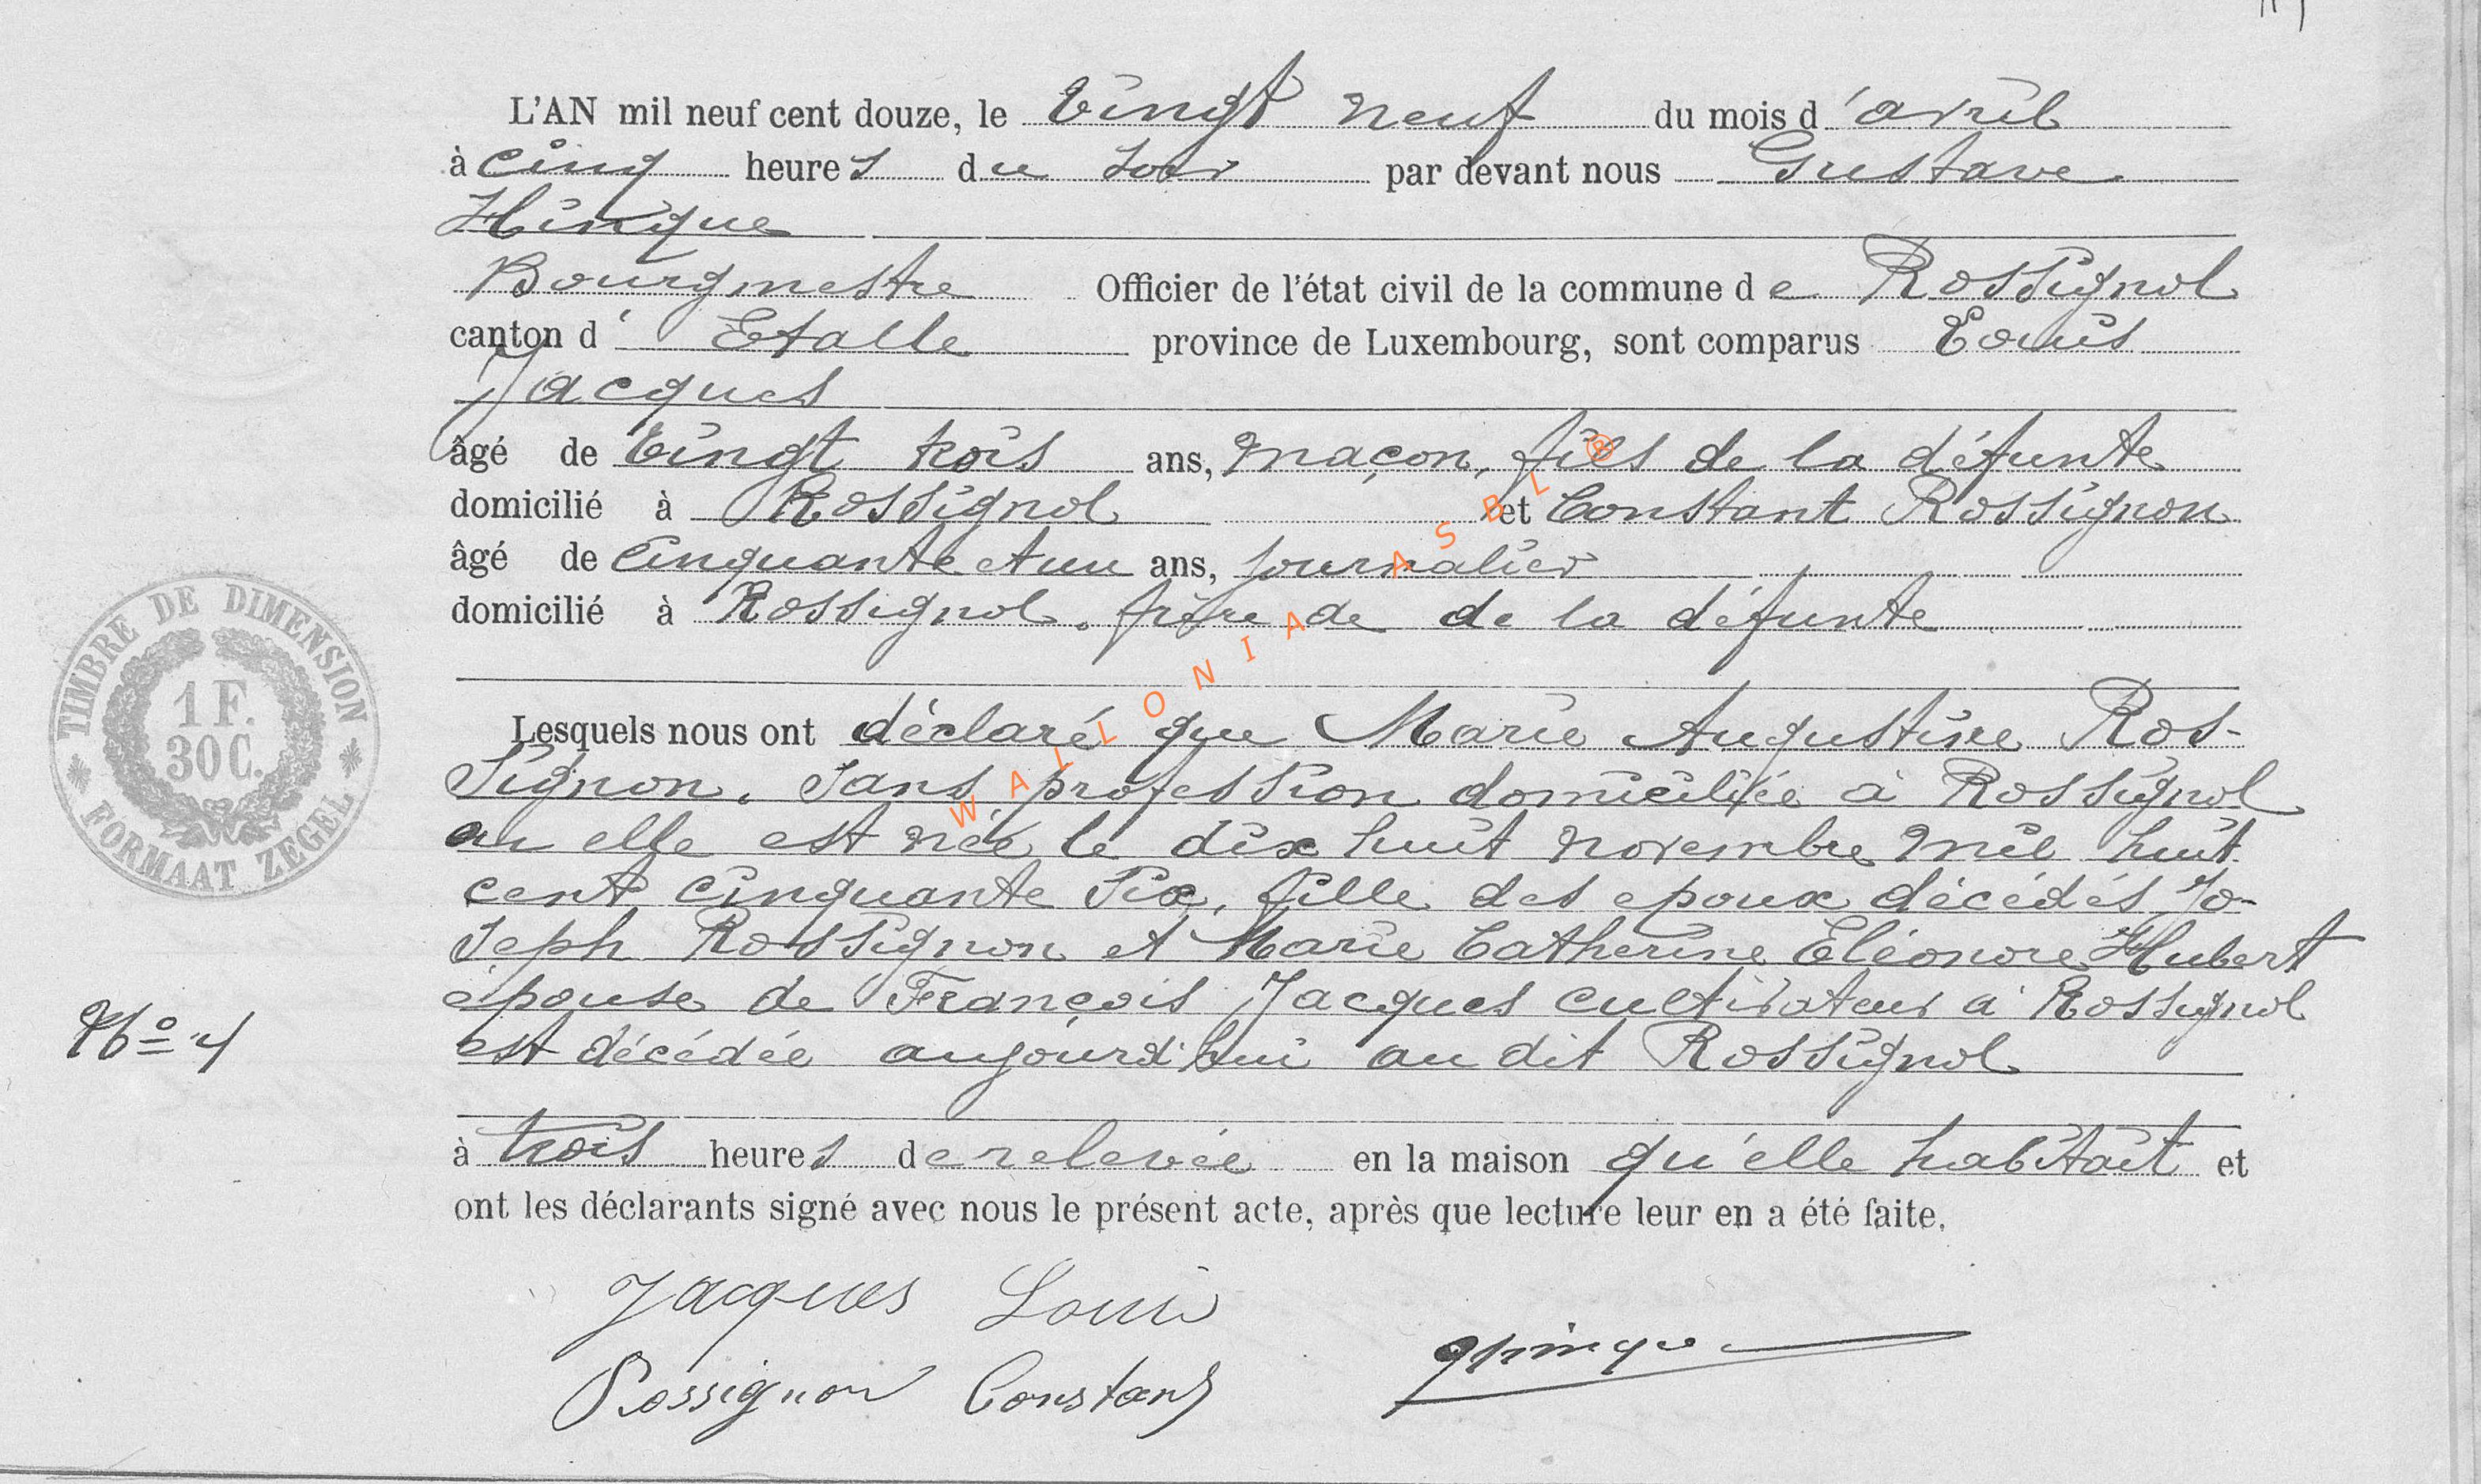 L'AN mil neuf cent douze, le vingt neuf du mois d'avril
à cinq heures du soir par devant nous Gustave
Hinque
Bourgmestre Officier de l'état civil de la commune de Rossignol
canton d'Etalle province de Luxembourg, sont comparus Louis
Jacques
âgé de vingt trois ans, maçon, fils de la défunte
domicilié à Rossignol et Constant Rossignon
âgé de cinquante et un ans, journalier
domicilié à Rossignol, frère de de la défunte
Lesquels nous ont déclaré que Marie Augustine Ros-
signon, sans profession domiciliée à Rossignol
ou elle est née le dix huit novembre mil huit
cent cinquante six, fille des epoux décédés Jo-
seph Rossignon et Marie Catherine Eléonore Hubert
épouse de François Jacques cultivateur à Rossignol
est décédée aujourd'hui au dit Rossignol
N° 4
à trois heures de relevée en la maison qu'elle habitait et
ont les déclarants signé avec nous le présent acte, après que lecture leur en a été faite.
Jacques Louis
Rossignon Constant
GHinque
TIMBRE DE DIMENSION
1 F.
30 C.
FORMAAT ZEGEL
WALLONIA ASBL ®